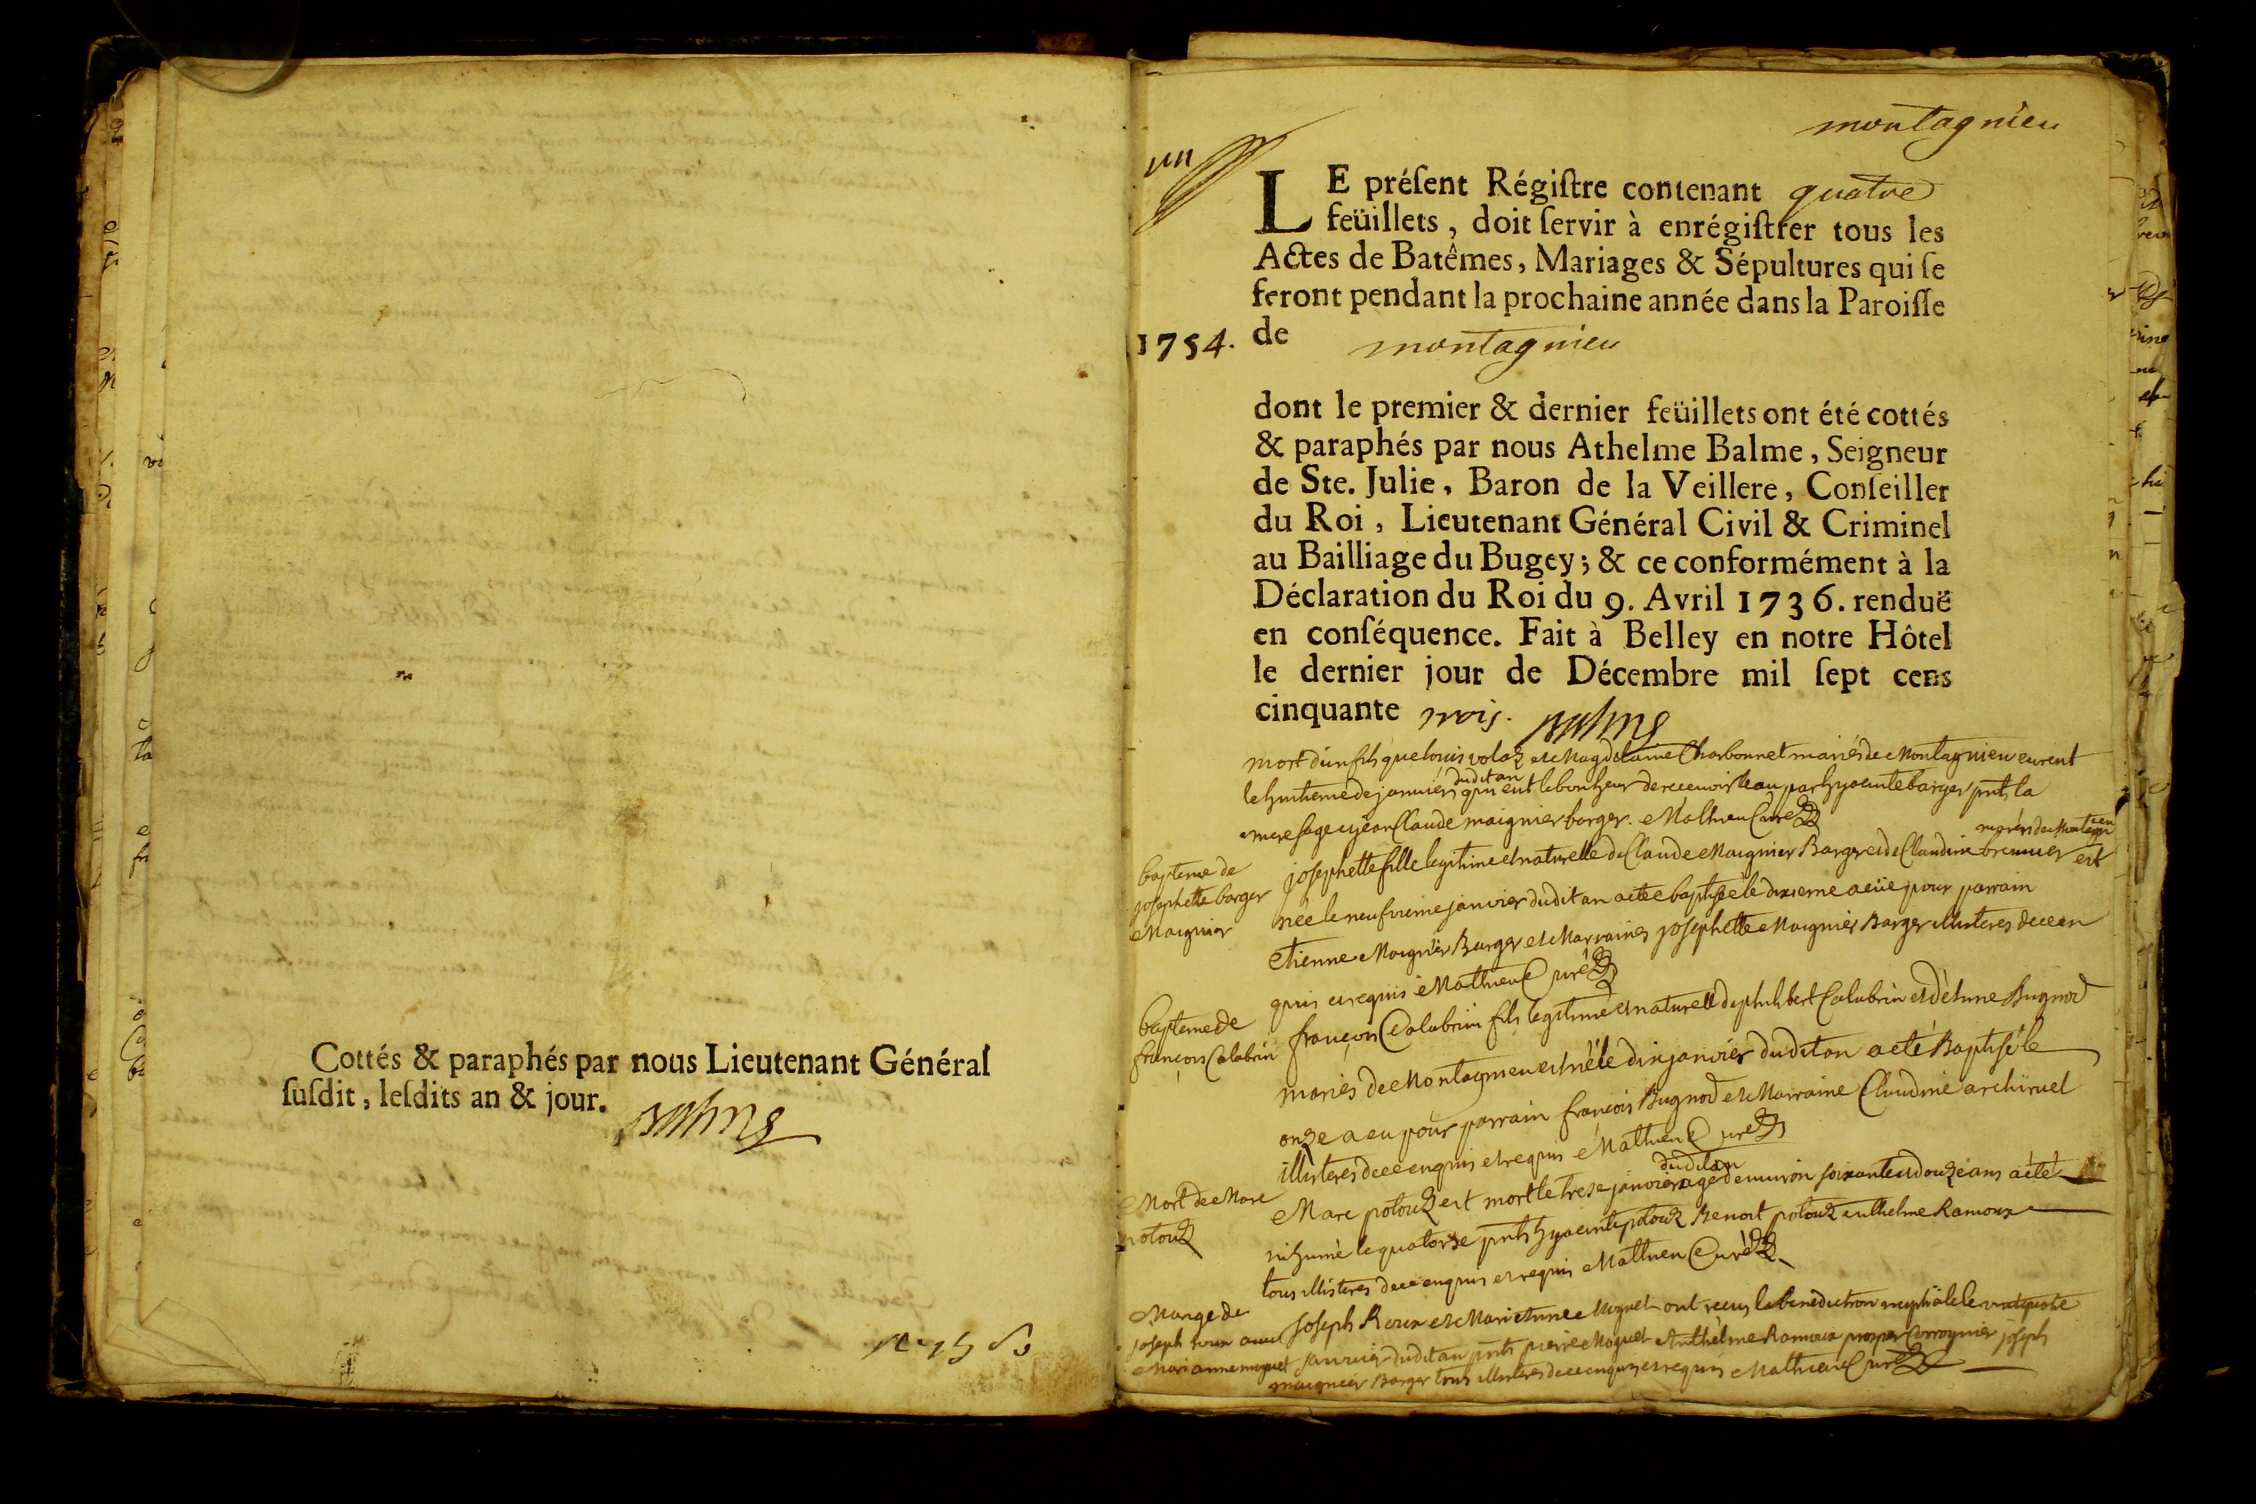 Cottés & paraphés par nous Lieutenant Général
ſuſdit, leſdits an & jour.
montagnieu
un
LE préſent Régiſtre contenant quatre
feüillets, doit ſervir à enrégiſtrer tous les
Actes de Batêmes, Mariages & Sépultures qui ſe
feront pendant la prochaine année dans la Paroiſſe
1754. de montagnieu
dont le premier & dernier feüillets ont été cottés
& paraphés par nous Athelme Balme, Seigneur
de Ste. Julie, Baron de la Veillere, Conſeiller
du Roi, Lieutenant Général Civil & Criminel
au Bailliage du Bugey; & ce conformément à la
Déclaration du Roi du 9. Avril 1736. renduë
en conſéquence. Fait à Belley en notre Hôtel
le dernier jour de Décembre mil ſept cens
cinquante trois. Balme
mort d'un fils que louis volaz et Magdelaine Charbonnet mariés de Montagnieu eurent
le huitieme de janvier dudit an qui eut le bonheur de recevoir leau par hyacinte barger pnts la
mere sage et jean Claude maignier barger. Mathieu Curé
bapteme de
josephette barger
Maignier
josephette fille legitime et naturelle de Claude Maignier Barger et de Claudine brennier mariés de Montagnieu est
née le neufvieme janvier dudit an a été baptisée le dixieme a eüe pour parrain
Etienne Maignier Barger et Marraine josephette Maignier Barger illiteres de ce en
quis et requis Mathieu Curé
bapteme de
françois Calabrin
françois Calabrin fils legitime et naturelle de philibert Calabrin et d'etiene Bugnod
mariés de Montagnieu est né le dix janvier dudit an a eté Baptisé le
onze a eu pour parrain françois Bugnod et Marraine Claudine archiruel
illiteres de ce enquis et requis Mathieu Curé
Mort de Marc
potouz
Marc potouz est mort le treze janvier dudit an agé d'environ soixante et douze ans a été
inhumé le quatorze pnts hyacinte potouz Benoit potouz enthelme Ramoux
tous illiteres de ce enquis et requis Mathieu Curé
Mariage de
joseph roux avec
Marianne muguet
joseph Roux et Mari etiene Muguet ont recus la benediction nuptiale le vint
janvier dudit an pnts pierre Moguet Anthelme Ramoux prosper joseph
maignier Barger tous illiteres de ce enquis et requis Mathieu Curé